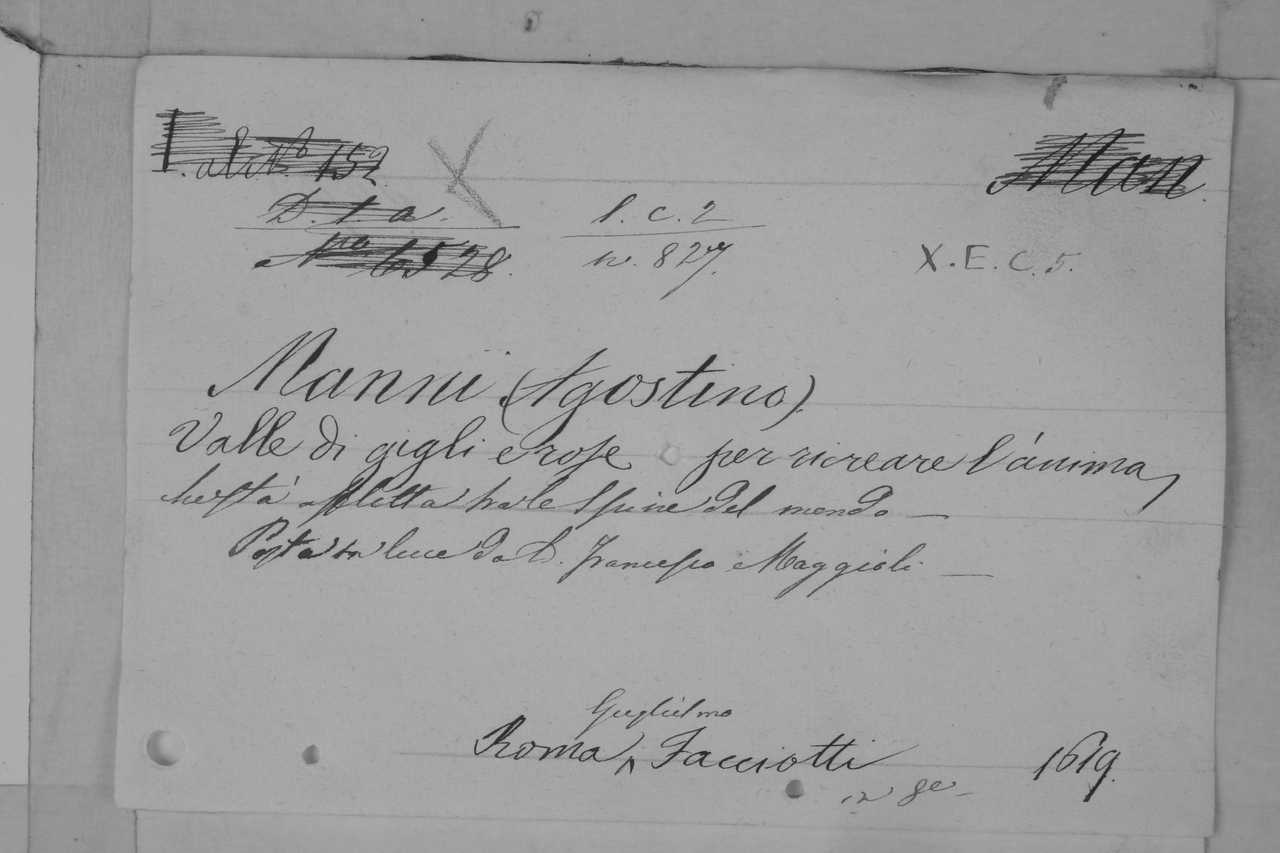 Man
D. 1. a. l. c. 2
N.ro 6528. n. 827. X. E. C. 5.
Manni (Agostino).
Valle di gigli e rose per ricreare l'anima,
che sta' afflitta tra le Spine del mondo —
Posta in luce da D. Francesco Maggioli —
Guglielmo
Roma, Facciotti 1619.
in 8°-